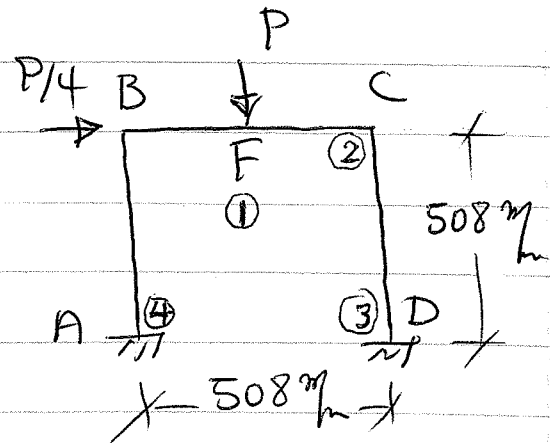 P
P/4 B C
F ②
①
508 m/m
A ④ ③ D
508 m/m